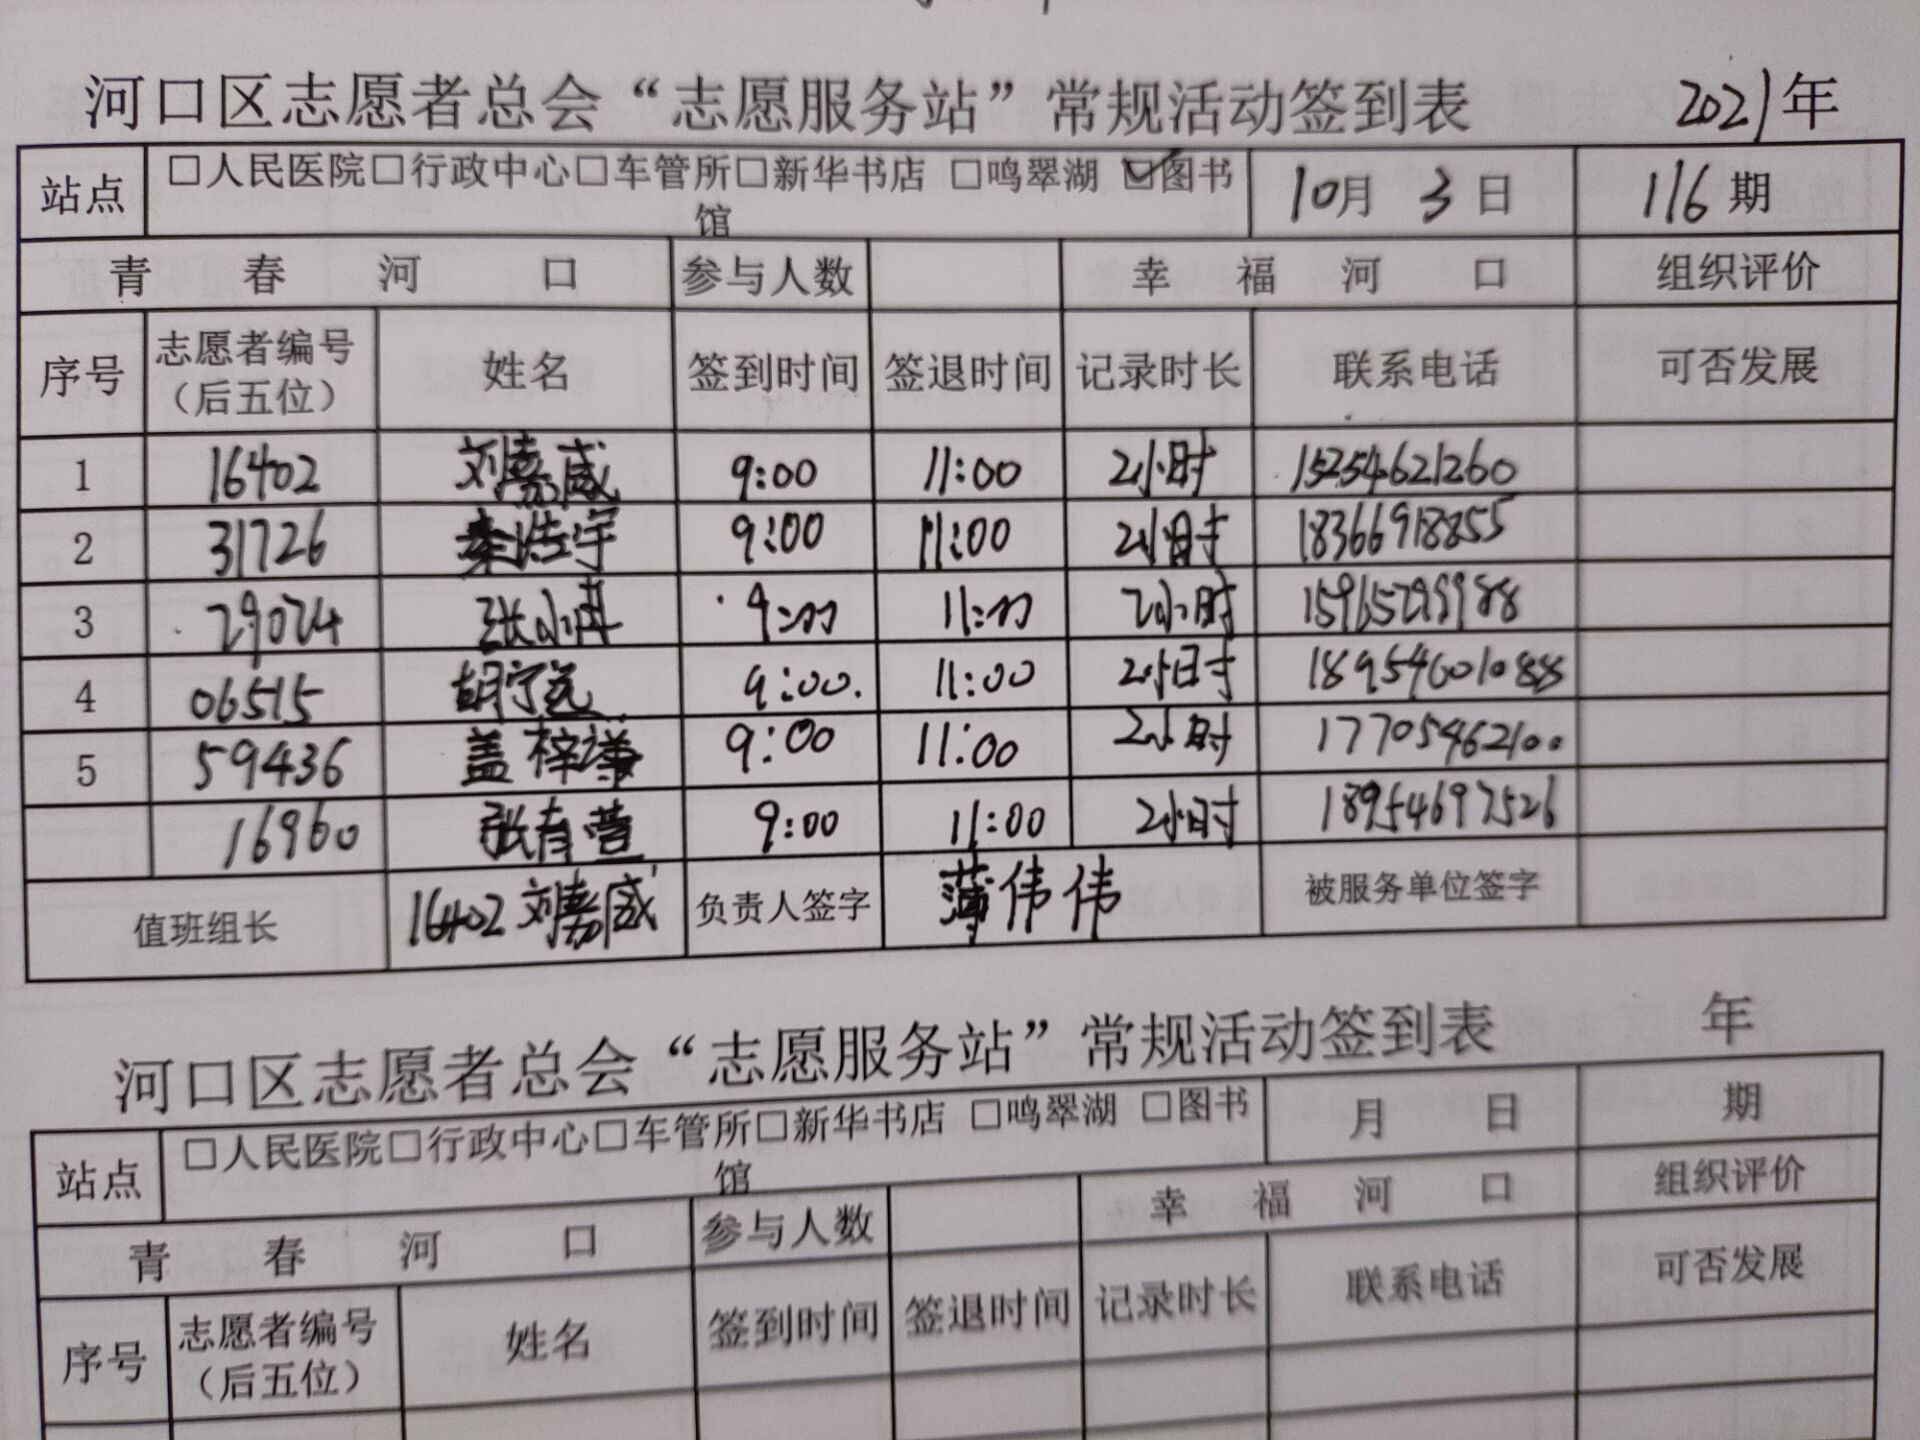 河口区志愿者总会“志愿服务站”常规活动签到表 2021年
站点 □人民医院□行政中心□车管所□新华书店 □鸣翠湖 ☑图书馆 10月 3日 116期
青春河口 参与人数 幸福河口 组织评价
序号 志愿者编号（后五位） 姓名 签到时间 签退时间 记录时长 联系电话 可否发展
1 16402 刘嘉威 9:00 11:00 2小时 15254621260
2 31726 秦浩宇 9:00 11:00 2小时 18366918855
3 29024 张小丹 9:00 11:00 2小时
4 06515 胡宁远 9:00. 11:00 2小时 18954601088
5 59436 盖梓 9:00 11:00 2小时 17705462100
16960 张育萱 9:00 11:00 2小时 18954697526
值班组长 16402 刘嘉威 负责人签字 薄伟伟 被服务单位签字
河口区志愿者总会“志愿服务站”常规活动签到表 年
站点 □人民医院□行政中心□车管所□新华书店 □鸣翠湖 □图书馆 月 日 期
青春河口 参与人数 幸福河口 组织评价
序号 志愿者编号（后五位） 姓名 签到时间 签退时间 记录时长 联系电话 可否发展